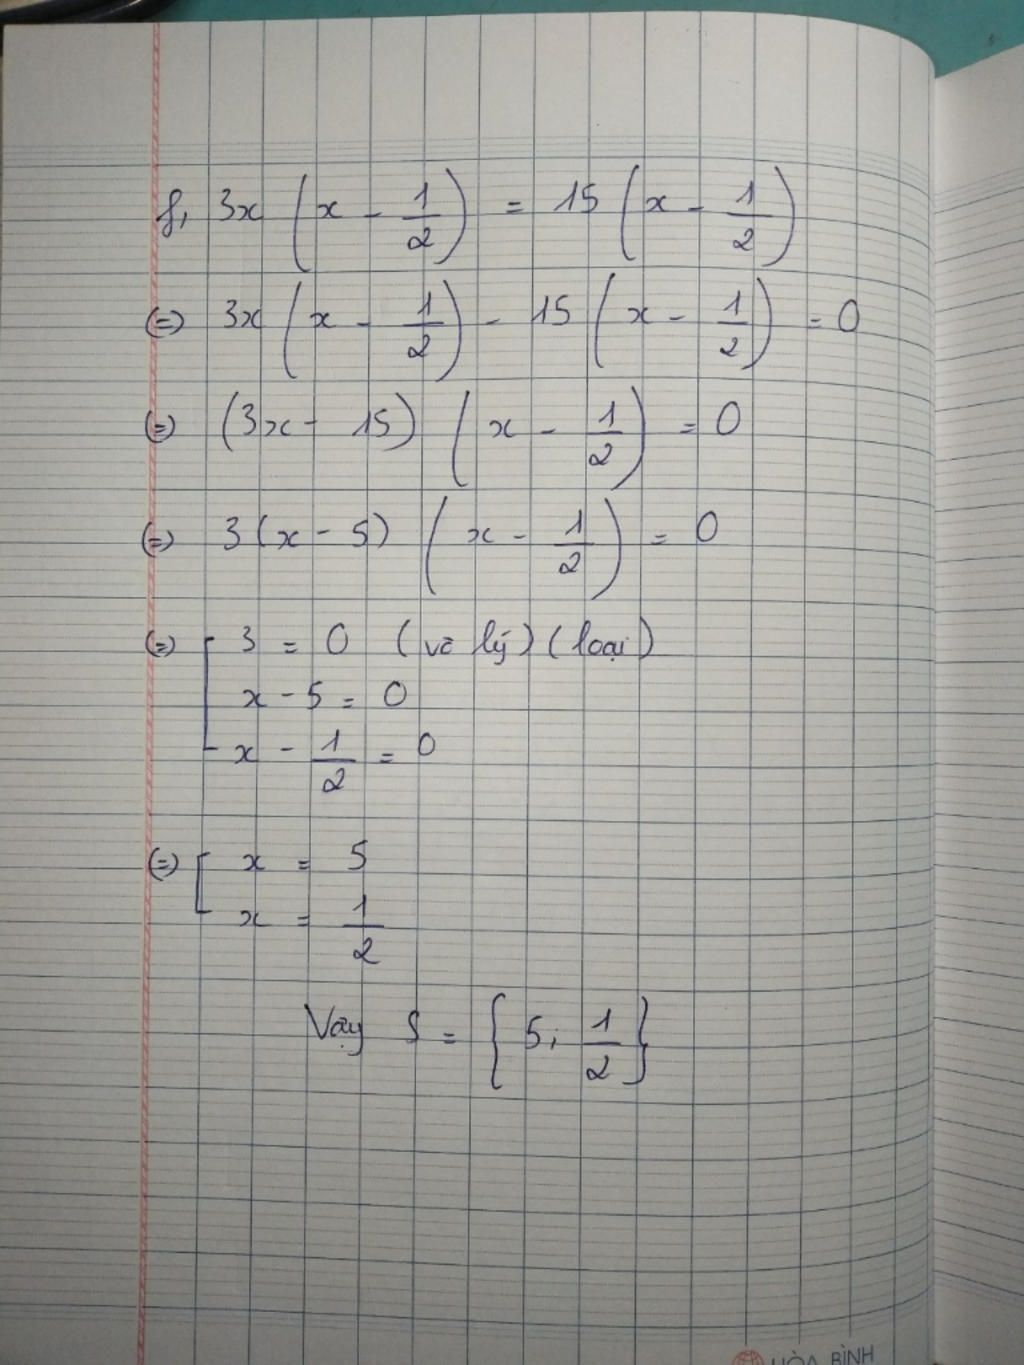 f, 3x (x - 1/2) = 15 (x - 1/2)
(=) 3x (x - 1/2) - 15 (x - 1/2) = 0
(=) (3x - 15) (x - 1/2) = 0
(=) 3(x - 5) (x - 1/2) = 0
(=) [ 3 = 0 (vô lý) (loại)
x - 5 = 0
x - 1/2 = 0
(=) [ x = 5
x = 1/2
Vậy S = {5; 1/2}
HÒA BÌNH